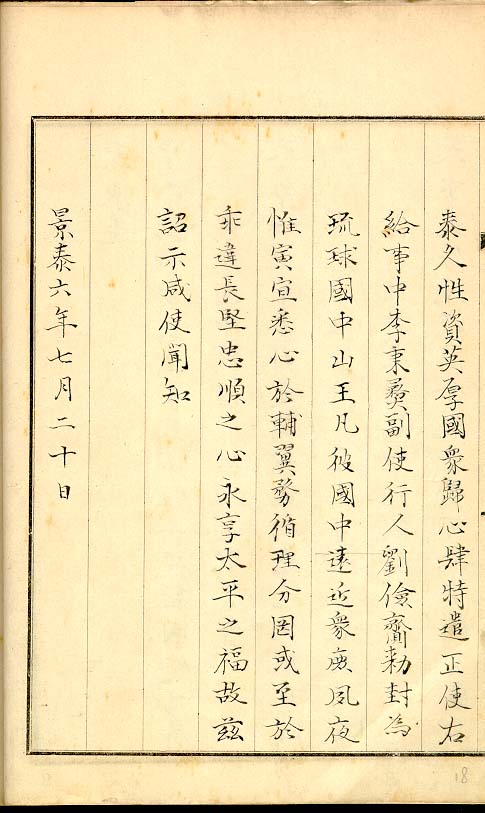 泰久性資英厚國衆歸心肆特遣正使右
給事中李秉彛副使行人劉儉齎勅封為
琉球國中山王凡彼國中遠近衆庻夙夜
惟寅宣悉心於輔翼務循理分罔或至於
乖違長堅忠順之心永享太平之福故兹
詔示咸使聞知
景泰六年七月二十日
18